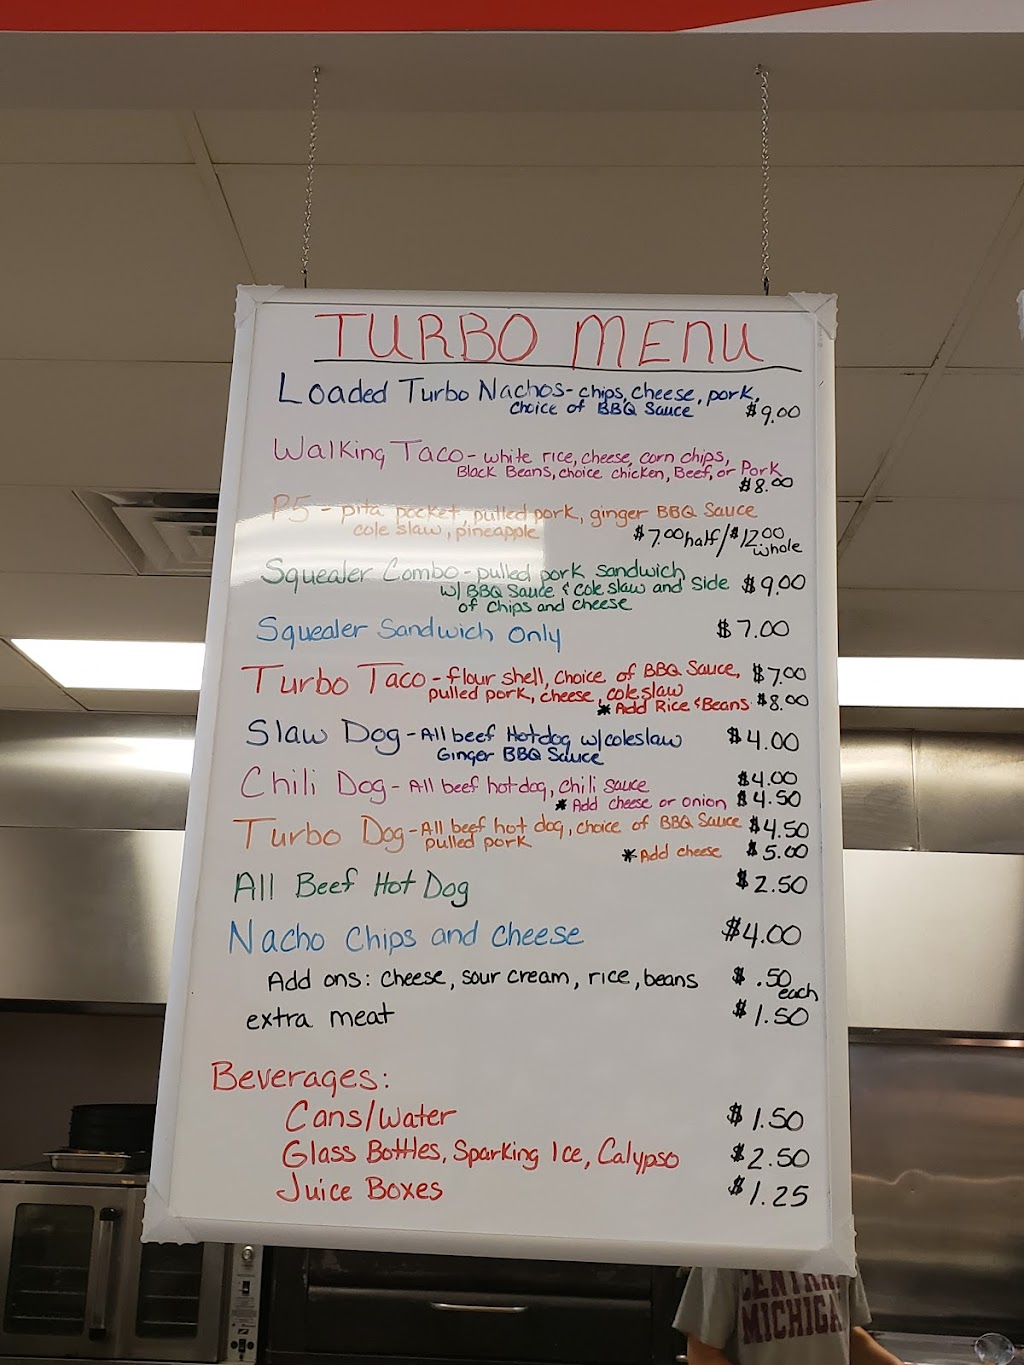 TURBO MENU
Loaded Turbo Nachos - chips, cheese, pork,
choice of BBQ Sauce $9.00
Walking Taco - white rice, cheese, corn chips,
Black Beans, choice chicken, Beef, or Pork
$8.00
P5 - pita pocket, pulled pork, ginger BBQ Sauce
cole slaw, pineapple $7.00 half/$12.00
whole
Squealer Combo - pulled pork sandwich
w/ BBQ Sauce & cole slaw and side $9.00
of chips and cheese
Squealer Sandwich Only $7.00
Turbo Taco - flour shell, choice of BBQ Sauce, $7.00
pulled pork, cheese, coleslaw
* Add Rice & Beans $8.00
Slaw Dog - All beef Hotdog w/coleslaw $4.00
Ginger BBQ Sauce
Chili Dog - All beef hot dog, chili sauce $4.00
* Add cheese or onion $4.50
Turbo Dog - All beef hot dog, choice of BBQ Sauce $4.50
pulled pork
* Add cheese $5.00
All Beef Hot Dog $2.50
Nacho Chips and Cheese $4.00
Add ons: cheese, sour cream, rice, beans $.50
each
extra meat $1.50
Beverages:
Cans/Water $1.50
Glass Bottles, Sparking Ice, Calypso $2.50
Juice Boxes $1.25
CENTRAL
MICHIGA